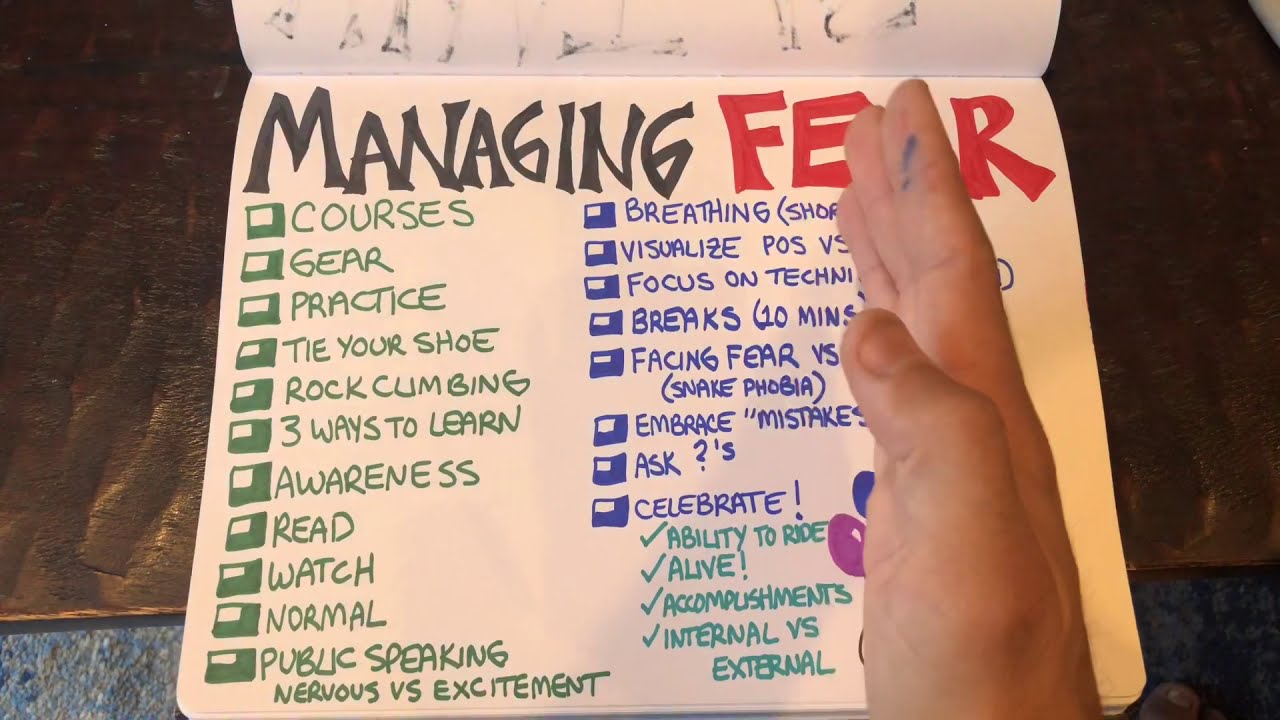 MANAGING FEAR
COURSES
GEAR
PRACTICE
TIE YOUR SHOE
ROCK CLIMBING
3 WAYS TO LEARN
AWARENESS
READ
WATCH
NORMAL
PUBLIC SPEAKING
NERVOUS VS EXCITEMENT
BREATHING
VISUALIZE POS VS
FOCUS ON
BREAKS (10 MINS
FACING FEAR VS
(SNAKE PHOBIA)
EMBRACE "MISTAKES
ASK ?'S
CELEBRATE!
✓ABILITY TO RIDE
✓ALIVE!
✓ACCOMPLISHMENTS
✓INTERNAL VS
EXTERNAL